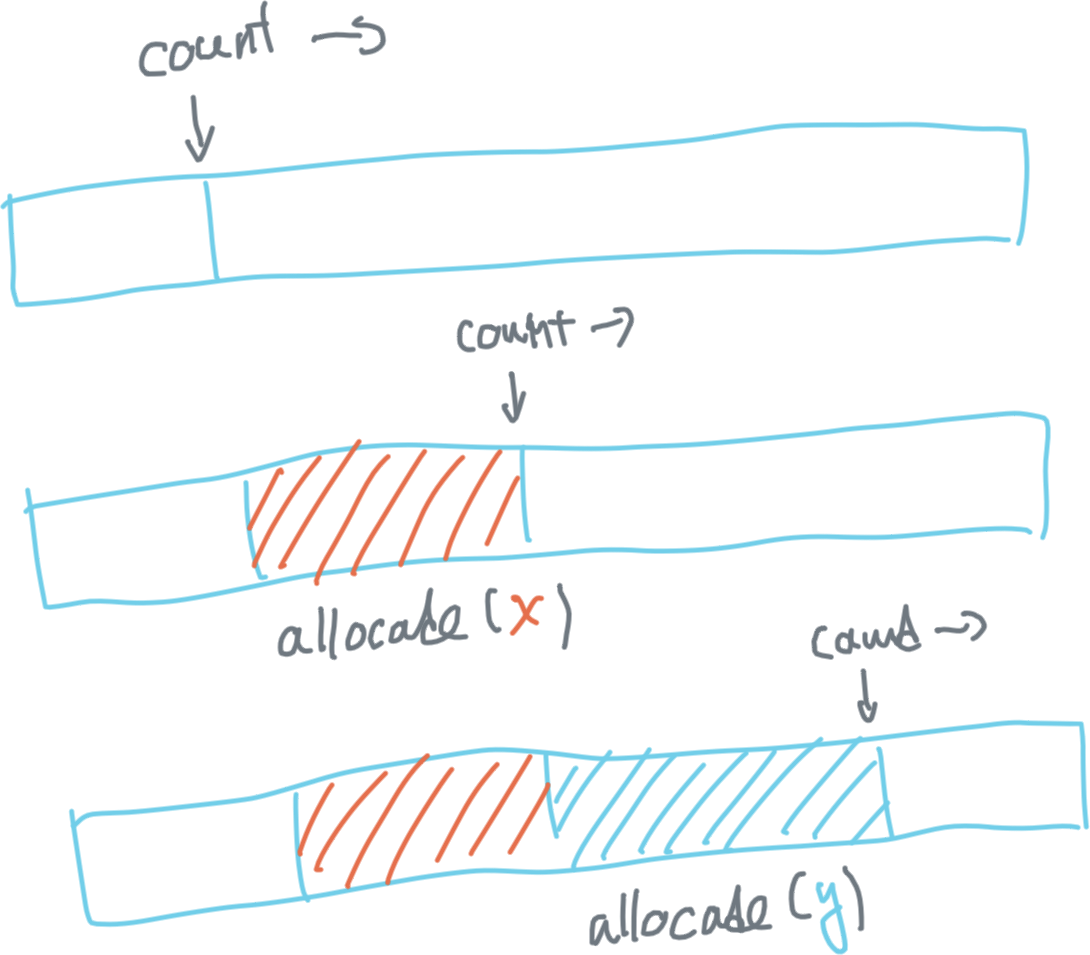 count →
count →
allocate (x)
count →
allocate (y)